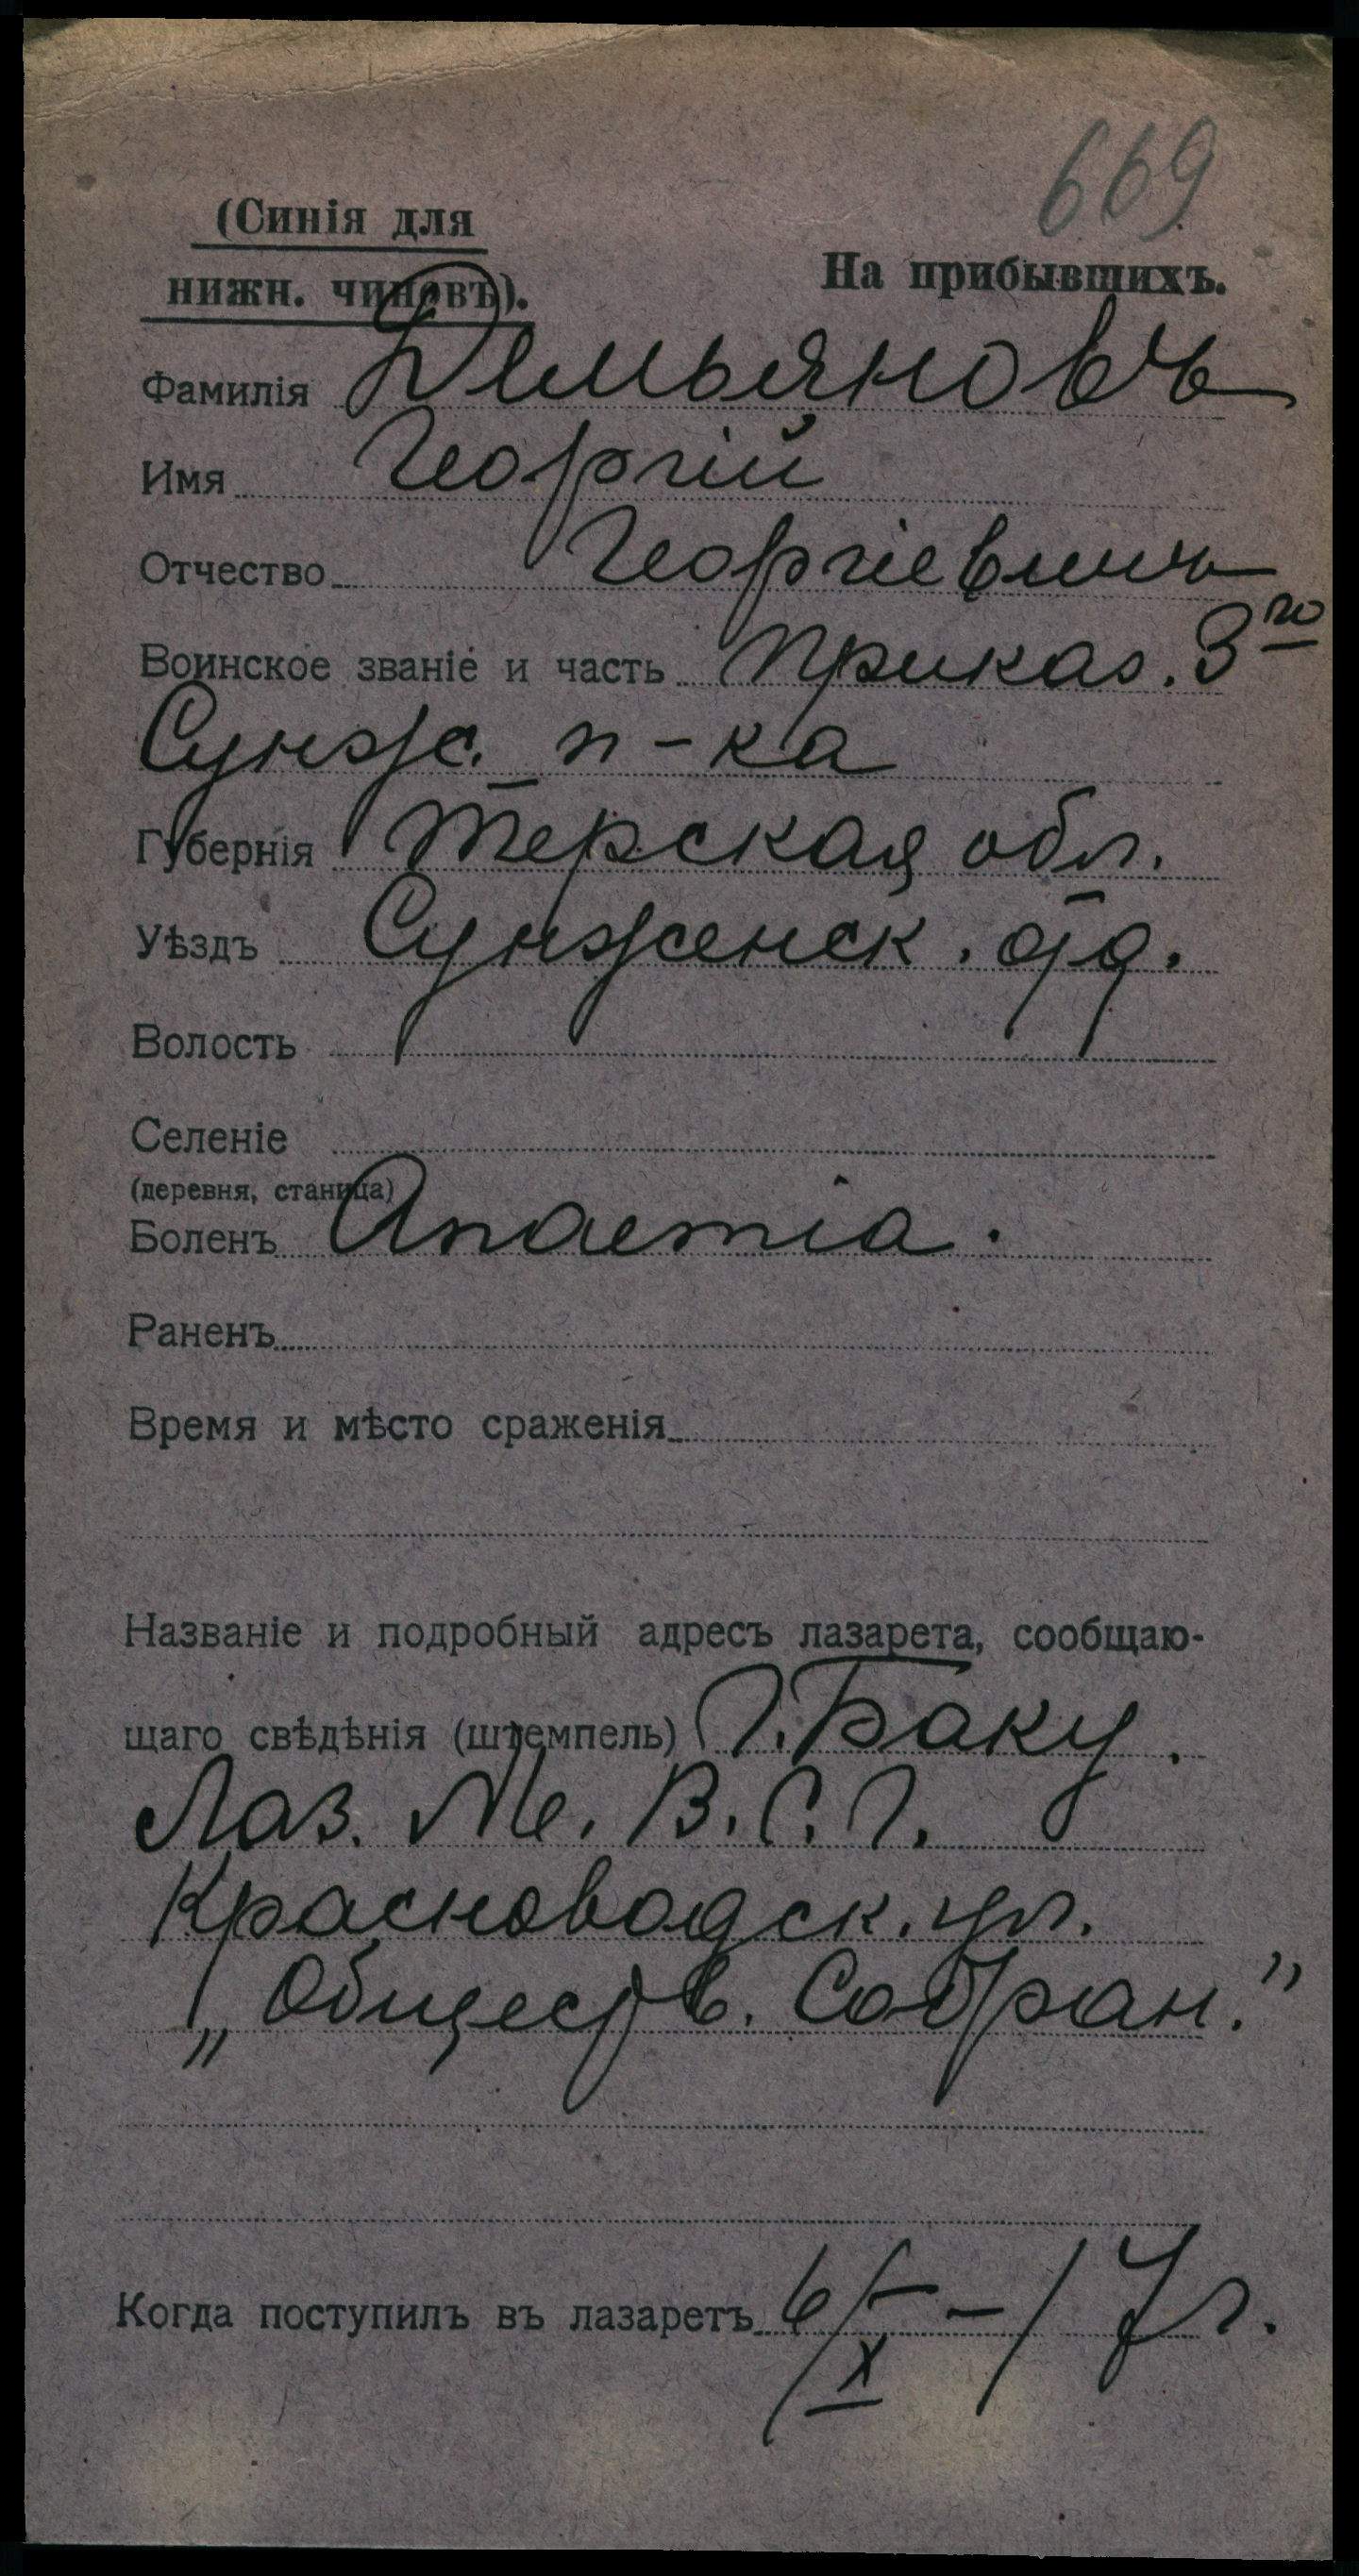 669
(Синія для
нижн. чиновъ).
На прибывшихъ.
Фамилія Демьяновъ
Имя Георгій
Отчество Георгіевичъ
Воинское званіе и часть Приказ. 3го
Сунж. п-ка
Губернія Терская обл.
Уѣздъ Сунженск. отд.
Волость
Селеніе
(деревня, станица)
Боленъ Anaemia.
Раненъ
Время и мѣсто сраженія
Названіе и подробный адресъ лазарета, сообщаю-
щаго свѣдѣнія (штемпель) г. Баку.
Лаз. № В. С. Г.
Красноводск. ул.
„Обществ. Собран.”
Когда поступилъ въ лазаретъ 6/X - 17 г.